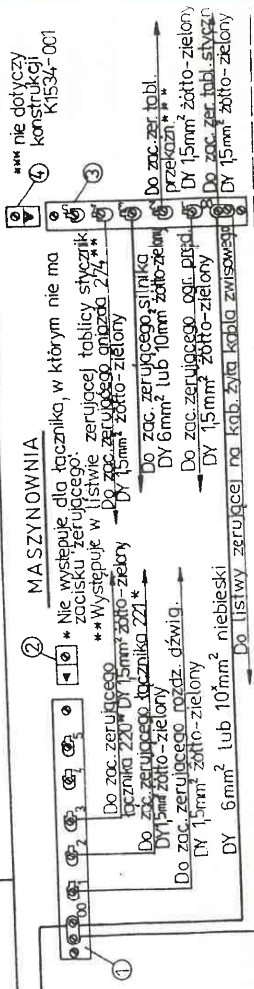 MASZYNOWNIA
* Nie występuje dla łącznika, w którym nie ma
zacisku zerującego.
** Występuje w listwie zerującej tablicy stycznik.
*** nie dotyczy
konstrukcji
K1534-001
1
2
3
4
00 1 2 3 4 5
Do zac. zerującego
łącznika 220* DY 1,5mm² żółto-zielony
Do zac. zerującego łącznika 221*
DY 1,5mm² żółto-zielony
Do zac. zerującego rozdz. dźwig.
DY 1,5mm² żółto-zielony
DY 6mm² lub 10mm² niebieski
Do listwy zerującej na kab. żyła kabla zwisowego
Do zac. zerującego gniazda 274**
DY 1,5mm² żółto-zielony
Do zac. zerującego silnika
DY 6mm² lub 10mm² żółto-zielony
Do zac. zerującego ogr. pręd.
DY 1,5mm² żółto-zielony
Do zac. zer. tabl.
przekaźn.***
DY 1,5mm² żółto-zielony
Do zac. zer. tabl. styczn
DY 1,5mm² żółto-zielony